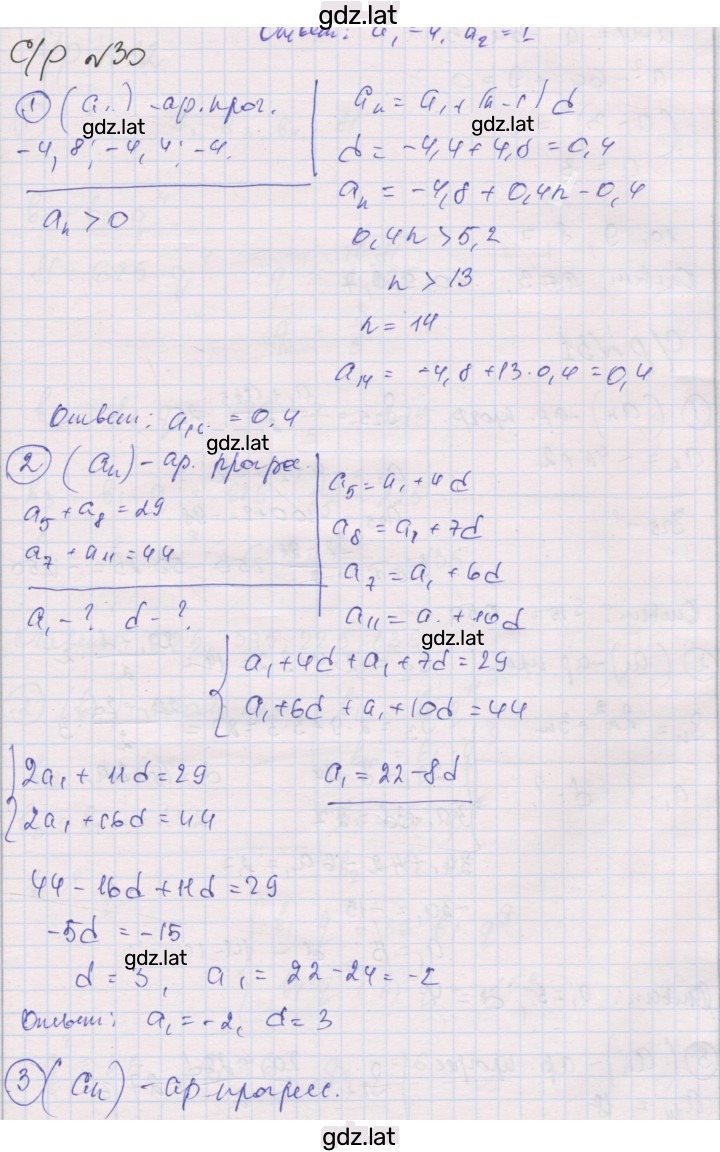 gdz.lat
Ответ: a₁ = 4. a₂ = 1
С/р №30
① (aₙ) - ар. прог.
gdz.lat
-4,8; -4,4; -4.
aₙ > 0
aₙ = a₁ + (n-1)d
gdz.lat
d = -4,4 + 4,8 = 0,4
aₙ = -4,8 + 0,4n - 0,4
0,4n > 5,2
n > 13
n = 14
a₁₄ = -4,8 + 13·0,4 = 0,4
Ответ: a₁₄ = 0,4
gdz.lat
② (aₙ) - ар. прогрес.
a₅ + a₈ = 29
a₇ + a₁₁ = 44
a₁ - ? d - ?
a₅ = a₁ + 4d
a₈ = a₁ + 7d
a₇ = a₁ + 6d
a₁₁ = a₁ + 10d
gdz.lat
{ a₁ + 4d + a₁ + 7d = 29
a₁ + 6d + a₁ + 10d = 44
{ 2a₁ + 11d = 29
2a₁ + 16d = 44
a₁ = 22 - 8d
44 - 16d + 11d = 29
-5d = -15
gdz.lat
d = 3, a₁ = 22 - 24 = -2
Ответ: a₁ = -2, d = 3
③ (aₙ) - ар прогресс.
gdz.lat